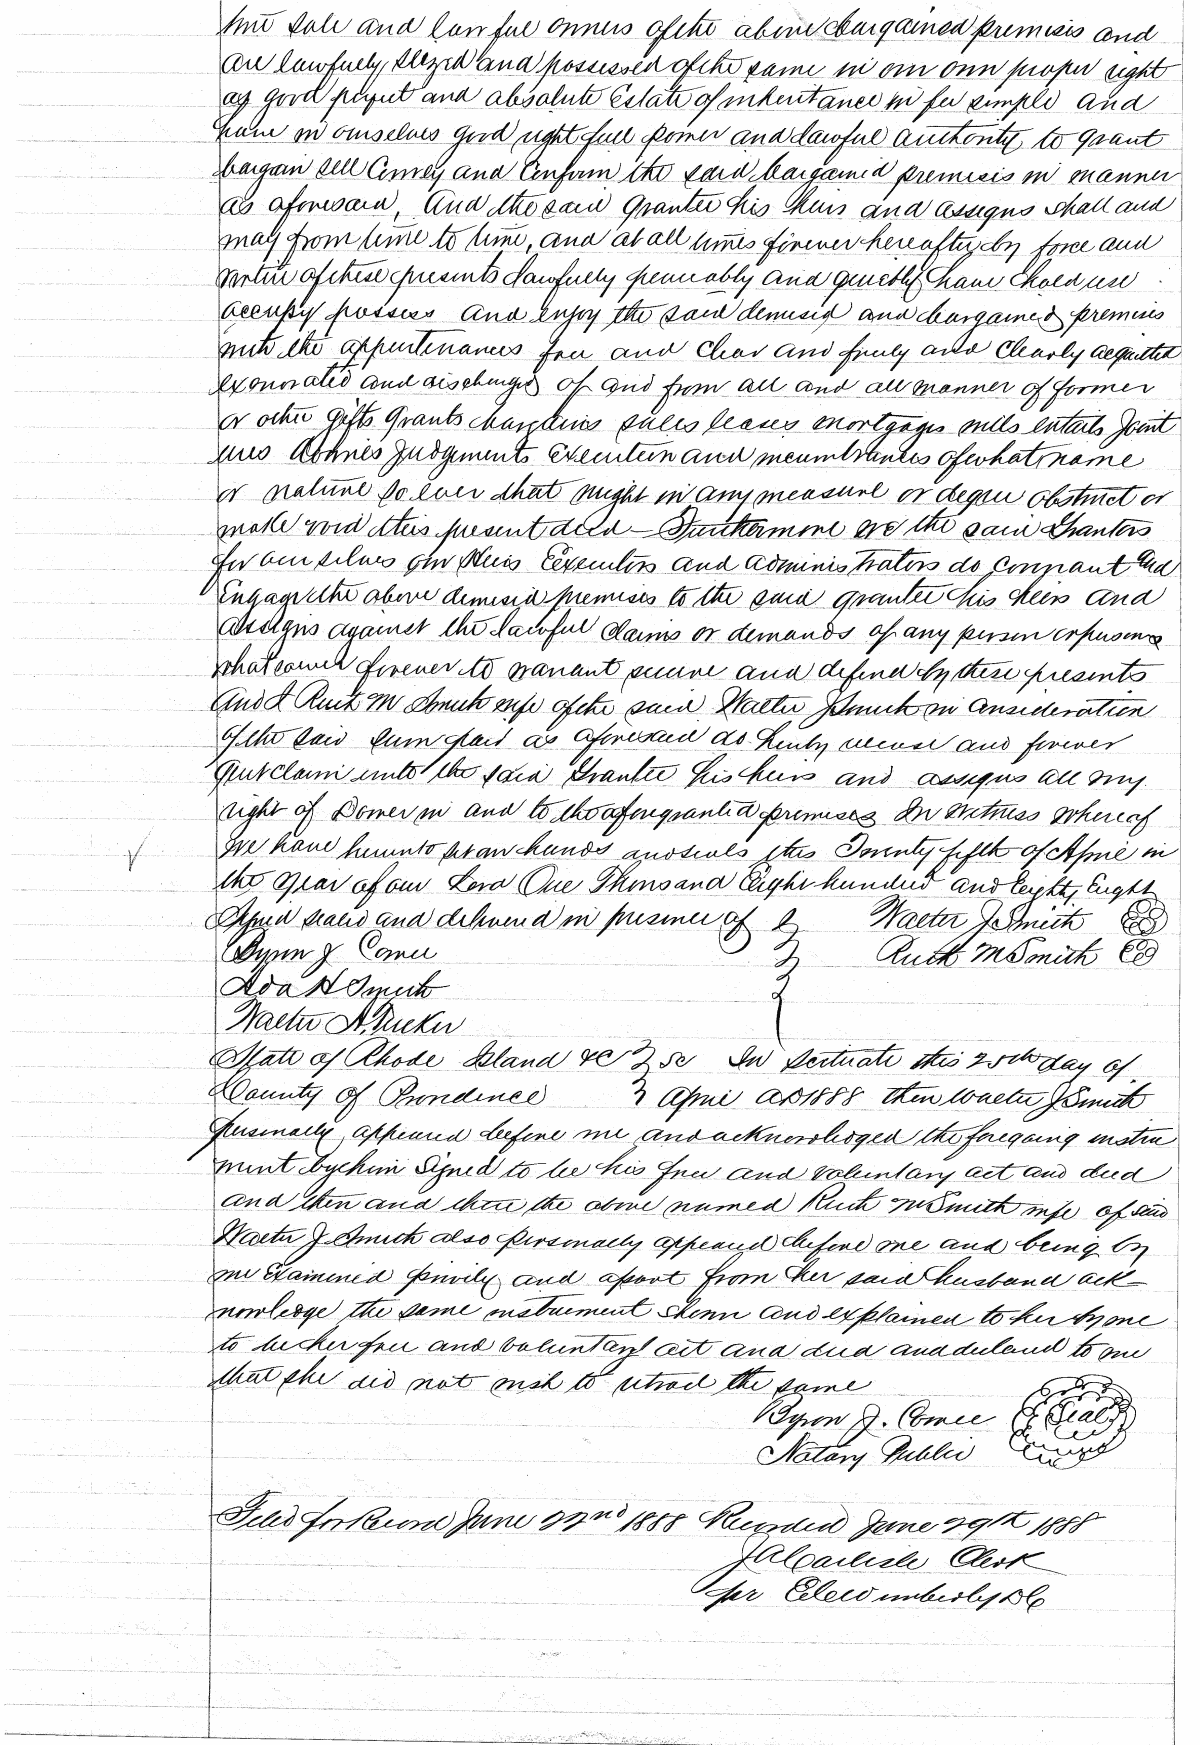 true sole and lawful owners of the above bargained premises and
are lawfully siezed and possessed of the same in our own proper right
as good perfect and absolute Estate of inheritance in fee simple and
have in ourselves good right full power and lawful authority to grant
bargain sell Convey and Confirm the said bargained premises in manner
as aforesaid, And the said grantee his heirs and assigns shall and
may from time to time, and at all times forever hereafter, by force and
virtue of these presents lawfully peaceably and quietly have hold use
occupy possess and enjoy the said demised and bargained premises
with the appurtenances free and clear and freely and clearly acquitted
exonorated and discharged of and from all and all manner of former
or other gifts grants bargains sales leases mortgages wills entails Joint
ures Dowries Judgements Execution and incumbrances of what name
or nature so ever that might in any measure or degree obstruct or
make void this present deed - Furthermore we the said Grantors
for ourselves our Heirs Executors and administrators do covenant and
Engage the above demised premises to the said grantee his heirs and
assigns against the lawful claims or demands of any person or persons
whatsoever forever to warrant secure and defend by these presents
And I Ruth M Smith wife of the said Walter J Smith in consideration
of the said sum paid as aforesaid do hereby release and forever
Quitclaim unto the said Grantee his heirs and assigns all my
right of Dower in and to the aforegranted premises In witness whereof
we have hereunto set our hands and seals this Twenty fifth of April in
the year of our Lord One Thousand Eight hundred and Eighty Eight
Signed sealed and delivered in presence of Walter J. Smith
Byron J Comee Ruth M Smith
Ada H Smith
Walter A. Tucker
State of Rhode Island &c } sc In Scituate this 25th day of
County of Providence } April AD 1888 then Walter J Smith
personally appeared before me and acknowledged the foregoing instru
ment by him signed to be his free and voluntary act and deed
and then and there the above named Ruth M Smith wife of said
Walter J. Smith also personally appeared before me and being by
me Examined privily and apart from her said husband ack-
nowledge the same instrument shown and explained to her by me
to be her free and voluntary act and deed and declared to me
that she did not wish to retract the same
Byron J. Comee Seal
Notary Public
Filed for Record June 22nd 1888 Recorded June 29th 1888
J A Carlisle Clerk
per E W Wimberly D C